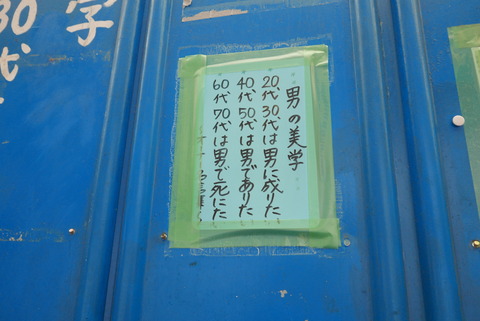 男の美学
20代、30代は男に成りた
40代、50代は男でありた
60代、70代は男で死にた
学
30
代